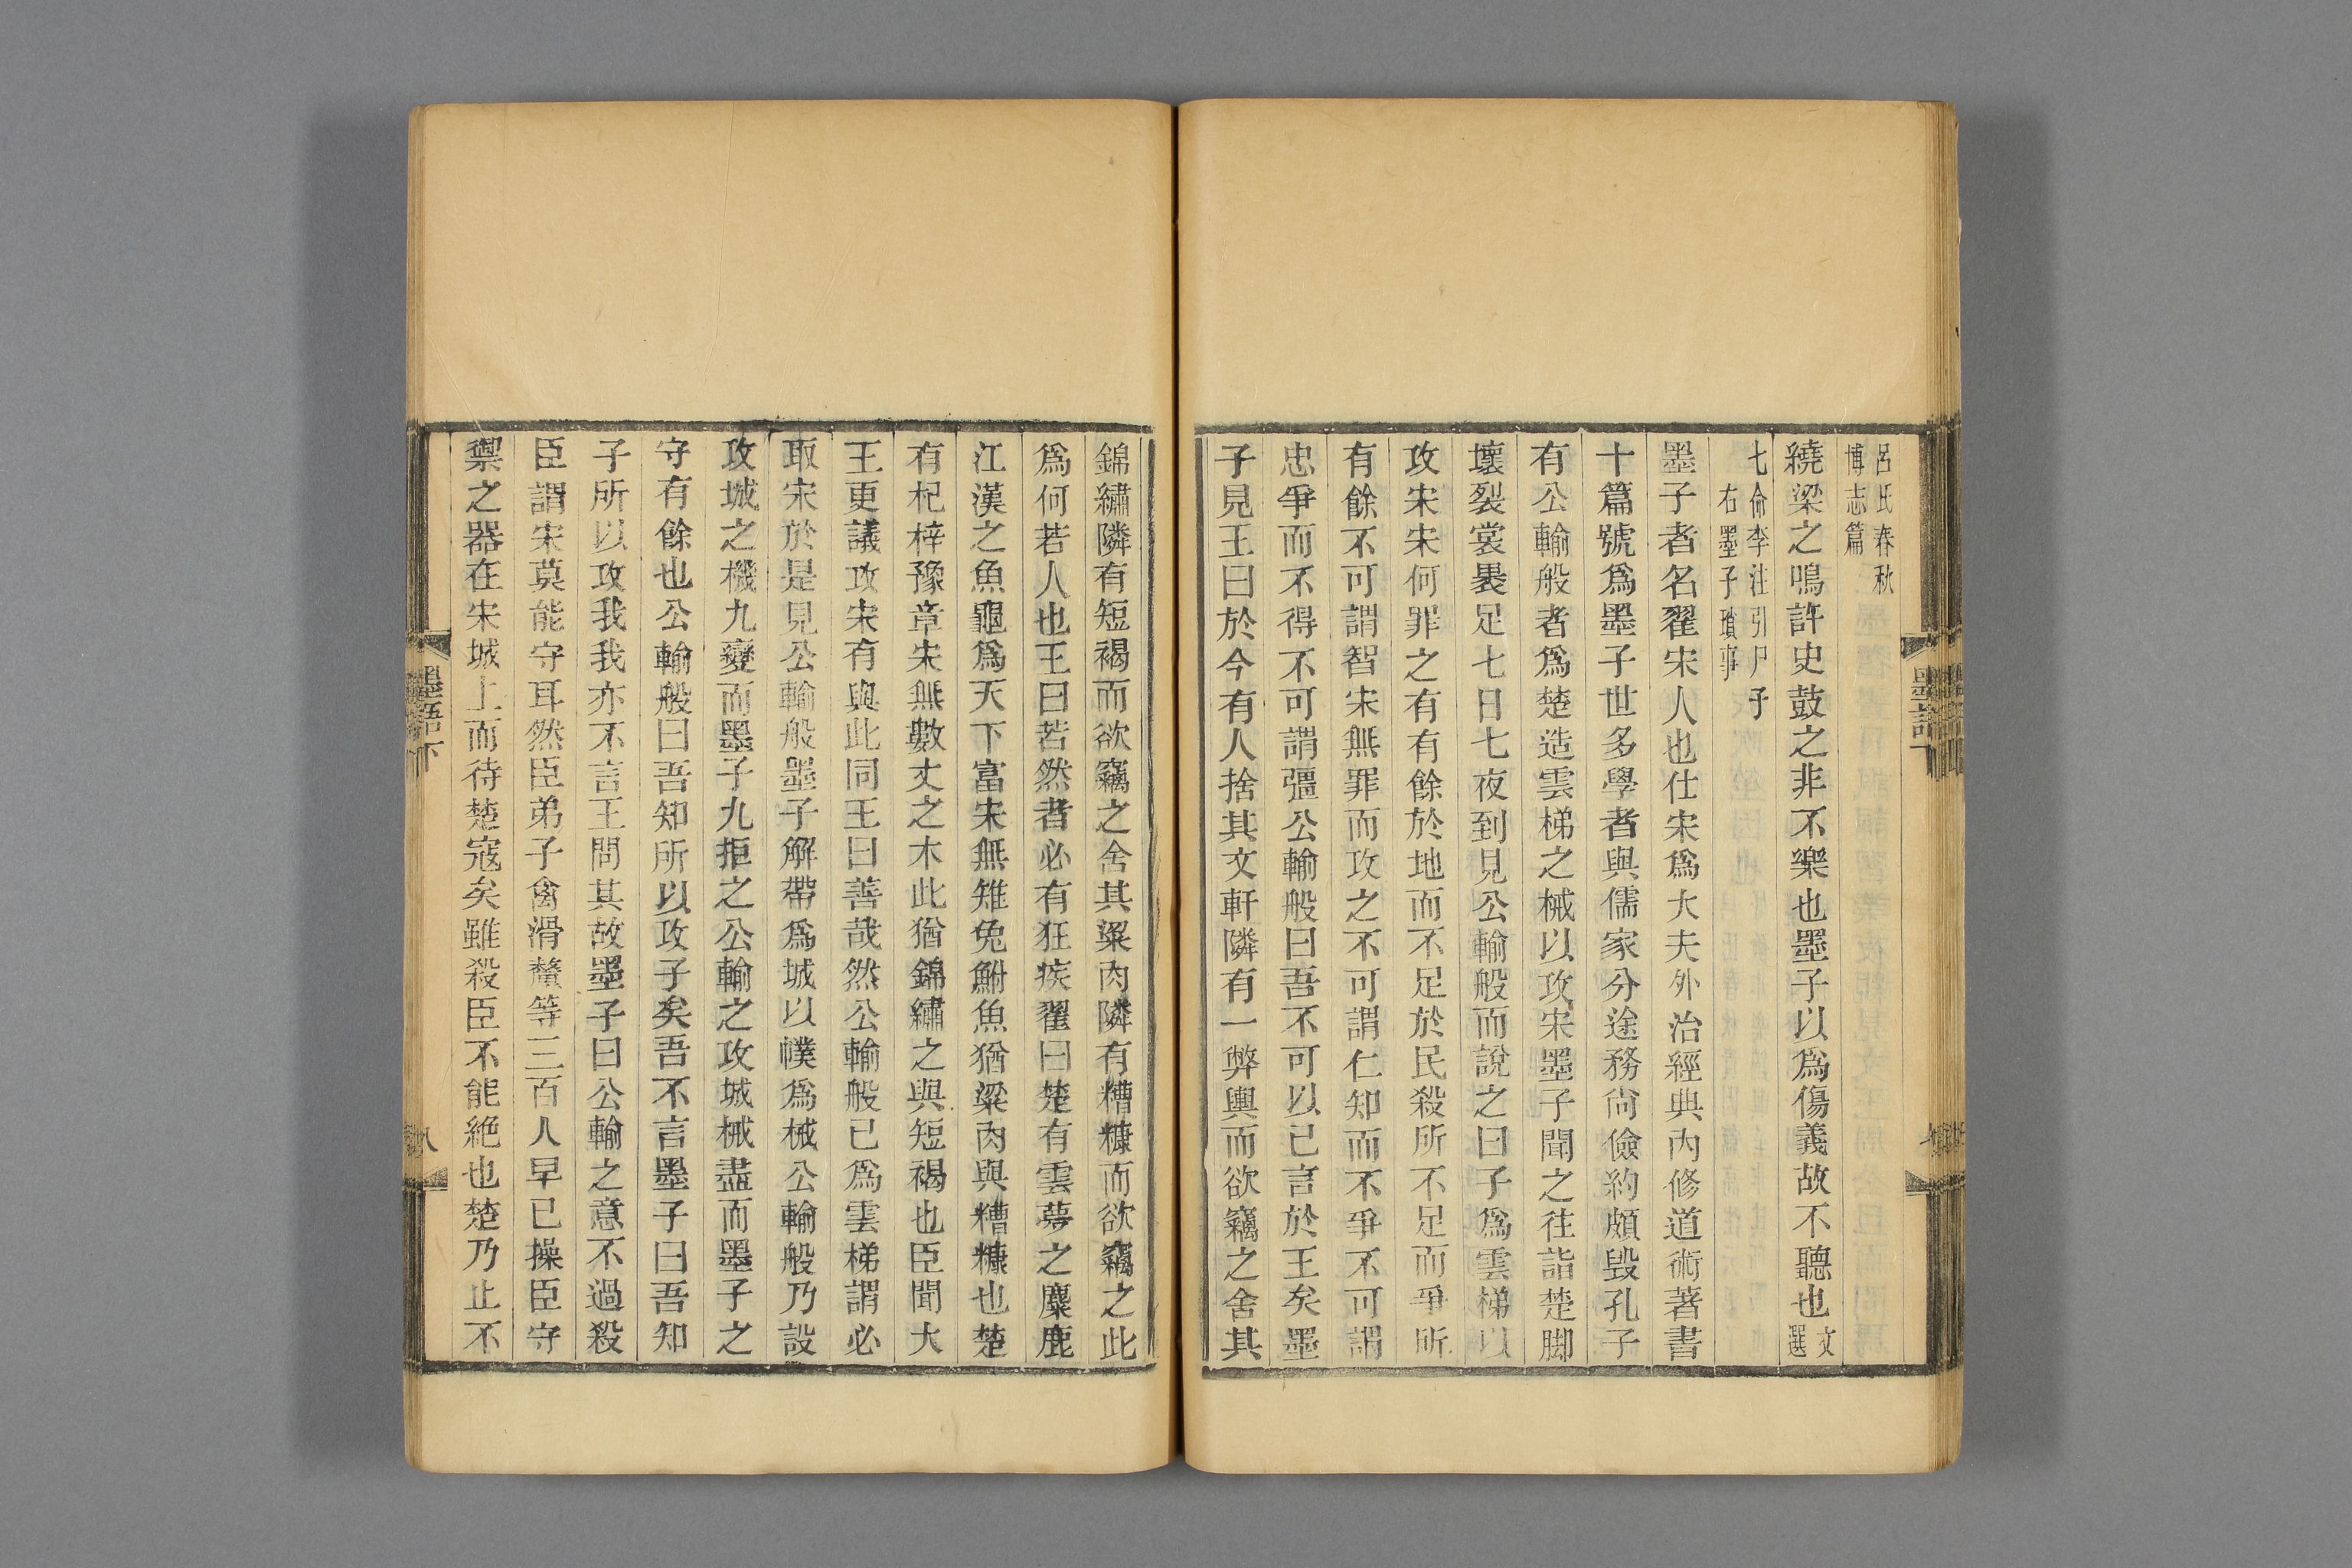 呂氏春秋
博志篇
繞梁之鳴許史鼓之非不樂也墨子以爲傷義故不聽也文選
七命李注引尸子
右墨子瑣事
墨子者名翟宋人也仕宋爲大夫外治經典內修道術著書
十篇號爲墨子世多學者與儒家分途務尙儉約頗毁孔子
有公輸般者爲楚造雲梯之械以攻宋墨子聞之往詣楚脚
壞裂裳裹足七日七夜到見公輸般而說之曰子爲雲梯以
攻宋宋何罪之有有餘於地而不足於民殺所不足而爭所
有餘不可謂智宋無罪而攻之不可謂仁知而不爭不可謂
忠爭而不得不可謂彊公輸般曰吾不可以已言於王矣墨
子見王曰於今有人捨其文軒隣有一弊輿而欲竊之舍其
錦繡隣有短褐而欲竊之舍其粱肉隣有糟糠而欲竊之此
爲何若人也王曰若然者必有狂疾翟曰楚有雲夢之麋鹿
江漢之魚龜爲天下富宋無雉兔鮒魚猶粱肉與糟糠也楚
有杞梓豫章宋無數丈之木此猶錦繡之與短褐也臣聞大
王更議攻宋有與此同王曰善哉然公輸般已爲雲梯謂必
取宋於是見公輸般墨子解帶爲城以幞爲械公輸般乃設
攻城之機九變而墨子九拒之公輸之攻城械盡而墨子之
守有餘也公輸般曰吾知所以攻子矣吾不言墨子曰吾知
子所以攻我我亦不言王問其故墨子曰公輸之意不過殺
臣謂宋莫能守耳然臣弟子禽滑釐等三百人早已操臣守
禦之器在宋城上而待楚寇矣雖殺臣不能絶也楚乃止不
墨語下
八